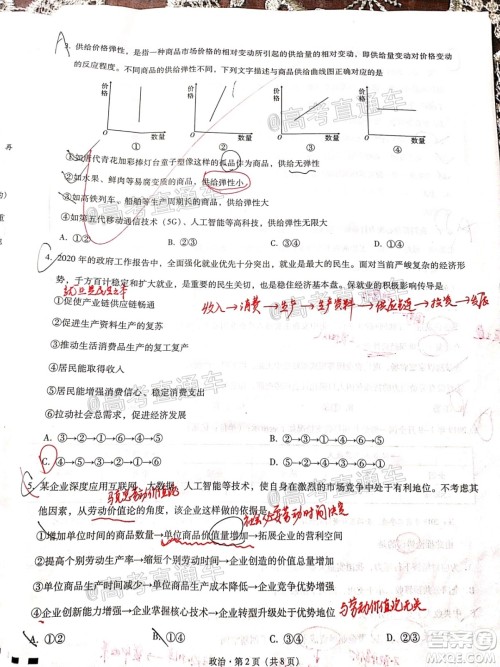 A
3. 供给价格弹性，是指一种商品市场价格的相对变动所引起的供给量的相对变动，即供给量变动对价格变动
的反应程度。不同商品的供给弹性不同，下列文字描述与商品供给曲线图正确对应的是
价格 价格 价格 价格
数量 数量 数量 数量
① ② ③ ④
①如唐代青花加彩捧灯台童子塑像这样的孤品作为商品，供给无弹性
②如水果、鲜肉等易腐变质的商品，供给弹性小
③如高铁列车、船舶等生产周期长的商品，供给弹性大
④如第五代移动通信技术（5G）、人工智能等高科技，供给弹性无限大
A. ①② B. ②③ C. ①③ D. ③④
4. 2020 年的政府工作报告中，全面强化就业优先十分突出，就业是最大的民生。面对当前严峻复杂的经济形
势，千方百计稳定和扩大就业，是重要的民生关切，也是稳住经济基本盘。保就业的积极影响传导是
①促使产业链供应链畅通
收入→消费→生产→生产资料→供应链→投资→发展
②促进生产资料生产的复苏
③推动生活消费品生产的复工复产
④居民能取得收入
⑤居民能增强消费信心、稳定消费支出
⑥拉动社会总需求，促进经济发展
C. ④→⑤→③→②→①→⑥
5. 某企业深度应用互联网、大数据、人工智能等技术，使自身在激烈的市场竞争中处于有利地位。不考虑其
马克思劳动价值论
他因素，从劳动价值论的角度，该企业这么做的依据是
社会必要劳动时间决定
①增加单位时间的商品数量→单位商品价值量增加→拓展企业的营利空间
②提高个别劳动生产率→缩短个别劳动时间→企业创造的价值总量增加
③单位商品生产时间减少→单位商品生产成本降低→企业竞争优势增强
④企业创新能力增强→企业掌握核心技术→企业转型升级处于优势地位
与劳动价值论无关
A. ①② B. ①④ C. ②③ D. ③④
政治·第 2 页（共 8 页）
@高考直通车
@高考直通车
@高考直通车
答案圈